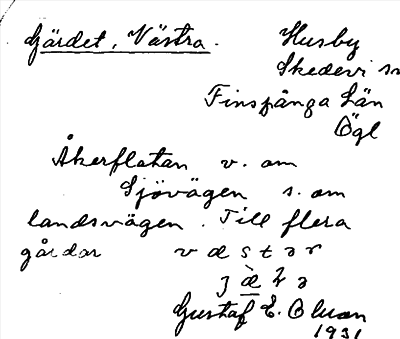 Gärdet, Västra.
Husby
Skedevi sn
Finspånga Län
Ögl
Åkerflatan v. om
Sjövägen s. om
landsvägen. Till flera
gårdar væstər
Gustaf E. Olsson
1931